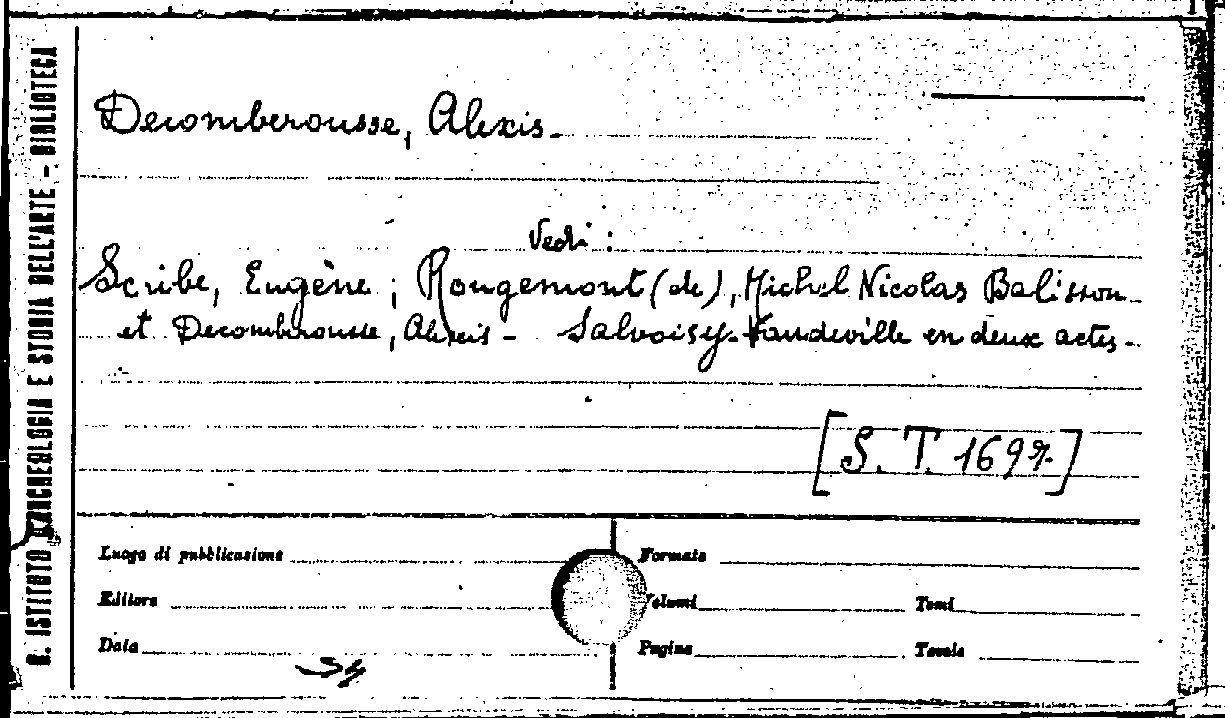 R. ISTITUTO D'ARCHEOLOGIA E STORIA DELL'ARTE - BIBLIOTECA
Decomberousse, Alexis -
Vedi :
Scribe, Eugène ; Rougemont (de), Michel Nicolas Balisson
et Decomberousse, Alexis - Salvoisy - Vaudeville en deux actes -
[S. T. 1697]
Luogo di pubblicazione
Formato
Editore
Volumi
Tomi
Data
Pagine
Tavole